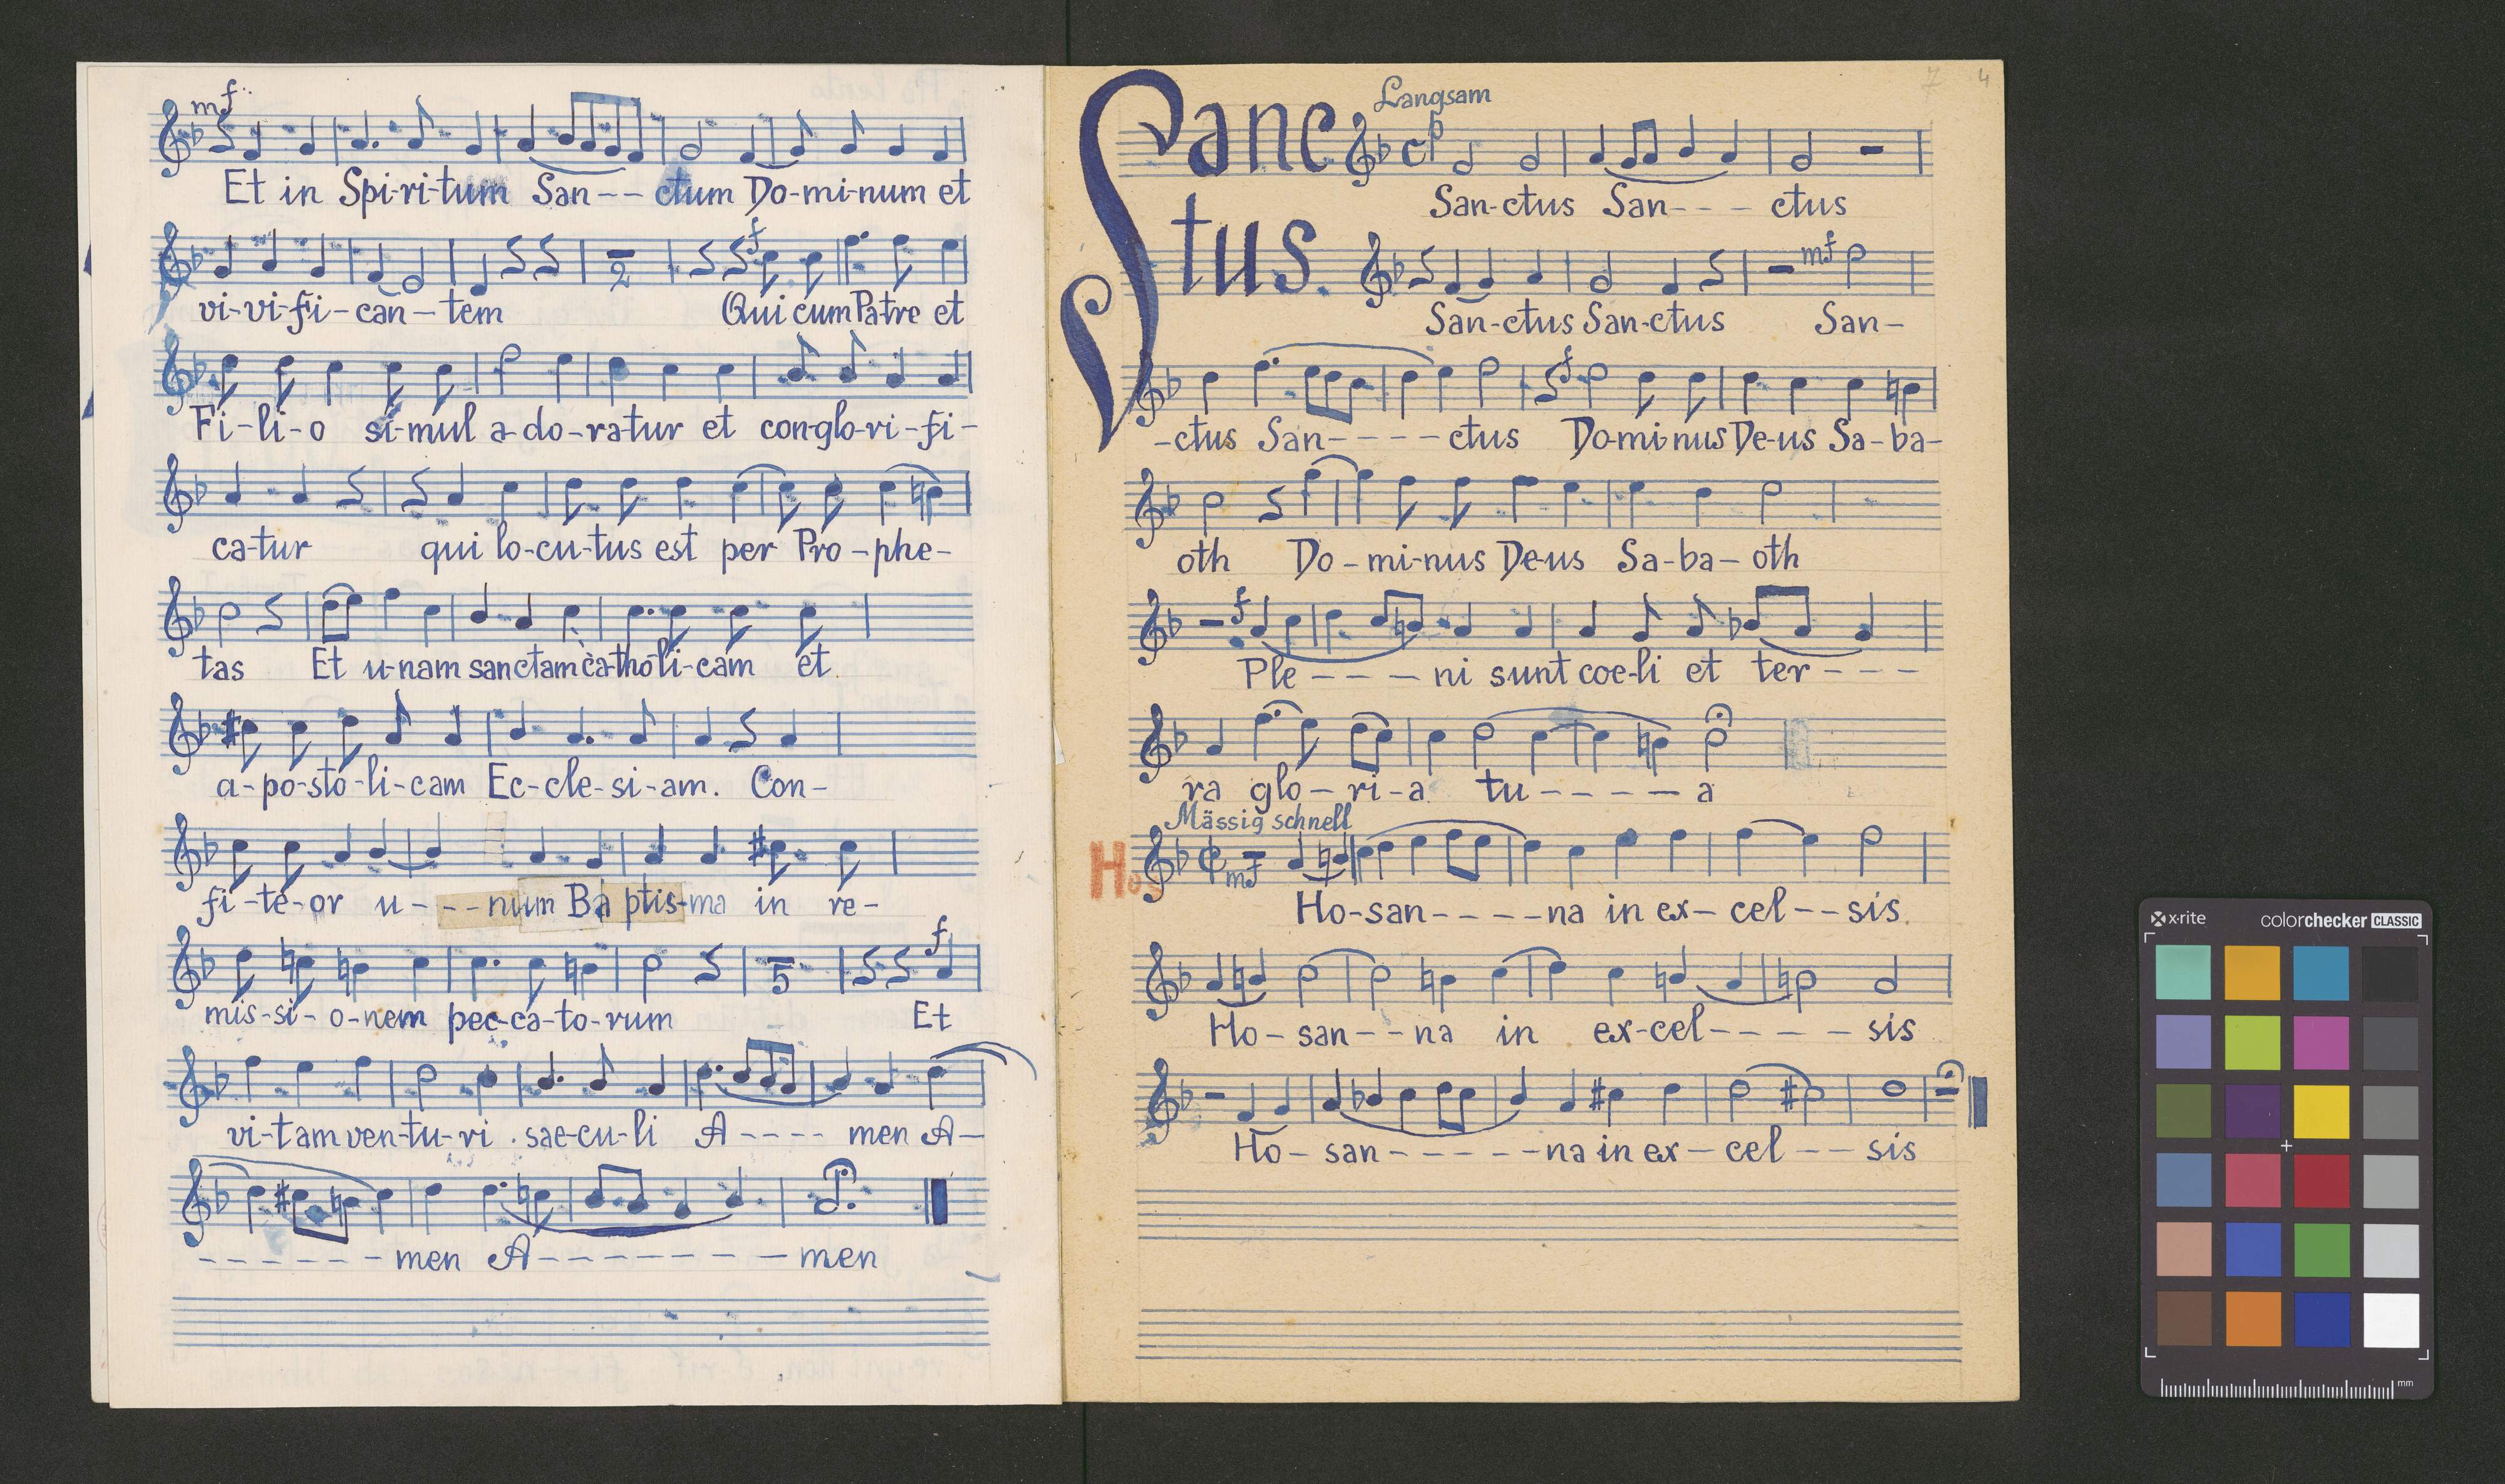 mf
Et in Spi-ri-tum San-- ctum Do-mi-num et
2
f
vi-vi-fi-can-tem Qui cum Pa-tre et
Fi-li-o si-mul a-do-ra-tur et con-glo-ri-fi-
ca-tur qui lo-cu-tus est per Pro-phe-
tas Et u-nam sanctam ca-tho-li-cam et
a-po-sto-li-cam Ec-cle-si-am. Con-
fi-te-or u---num Ba ptis-ma in re-
5
f
mis-si-o-nem pec-ca-to-rum Et
vi-tam ven-tu-ri. sae-cu-li A---- men A-
------men A--------men
7 4
Sanc
tus.
Langsam
p
San-ctus San--- ctus
mf
San-ctus San-ctus San-
f
-ctus San----ctus Do-mi-nus De-us Sa-ba-
oth Do-mi-nus De-us Sa-ba-oth
f
Ple---ni sunt coe-li et ter---
ra glo-ri-a tu---- a
Mässig schnell
Hos
mf
Ho-san----na in ex-cel--sis.
Ho-san--na in ex-cel----sis
Ho-san-----na in ex-cel--sis
x-rite colorchecker CLASSIC
mm